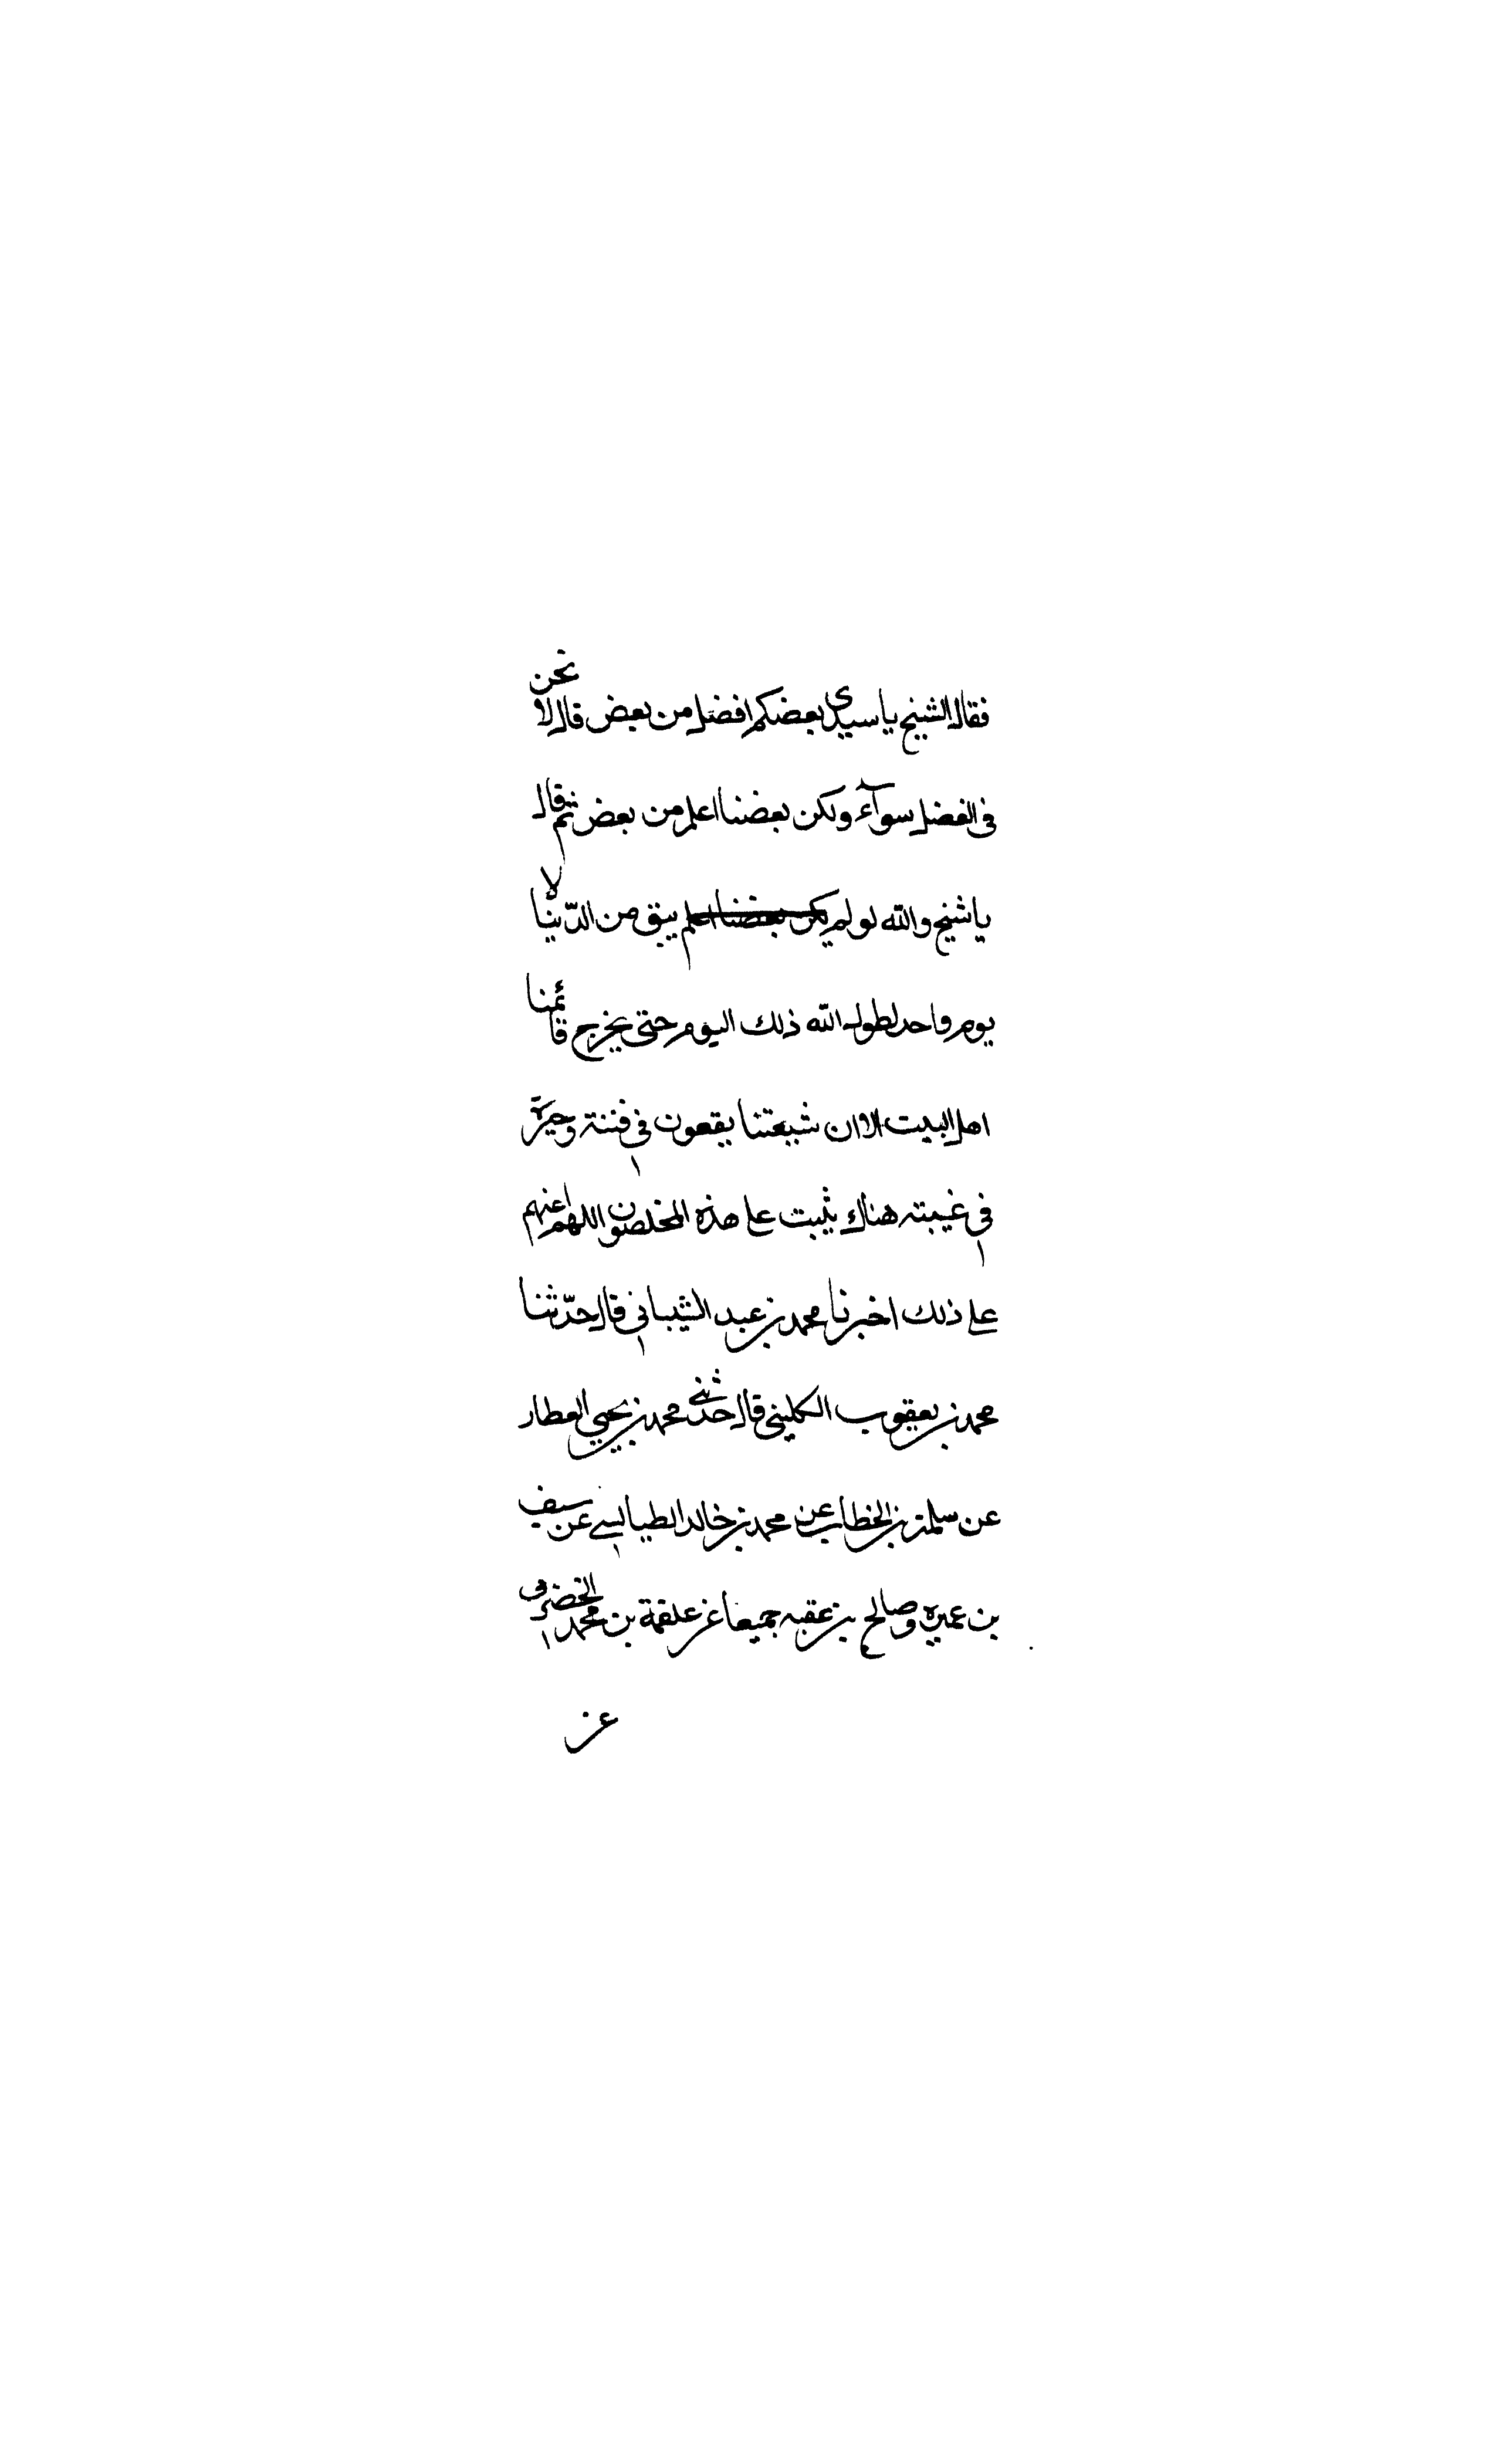 فقال الشيخ يا سيدي بعضكم افضل من بعض قال لا نحن
في الفضل سوآء ولكن بعضنا اعلم من بعض ثم قال
يا شيخ والله لو لم يكن بعضنا اعلم يبق من الدّنيا الا
يوم واحد لطول الله ذلك اليوم حتى يخرج قائمنا
اهل البيت الا ان شيعتنا يقعون في فتنة وحيرة
في غيبته هناك يثبت على هذه المخلصون اللهم اعنهم
على ذلك اخبرنا محمد بن عبد الشيباني قال حدّثنا
محمد بن يعقوب الكليني قال حدثني محمد بن يحيي العطار
عن سلمة بن الخطاب عن محمد بن خالد الطيالسي عن سيف
بن عميره وصالح بن عقبه جميعا عن علقمة بن محمد الحضرمي
عن